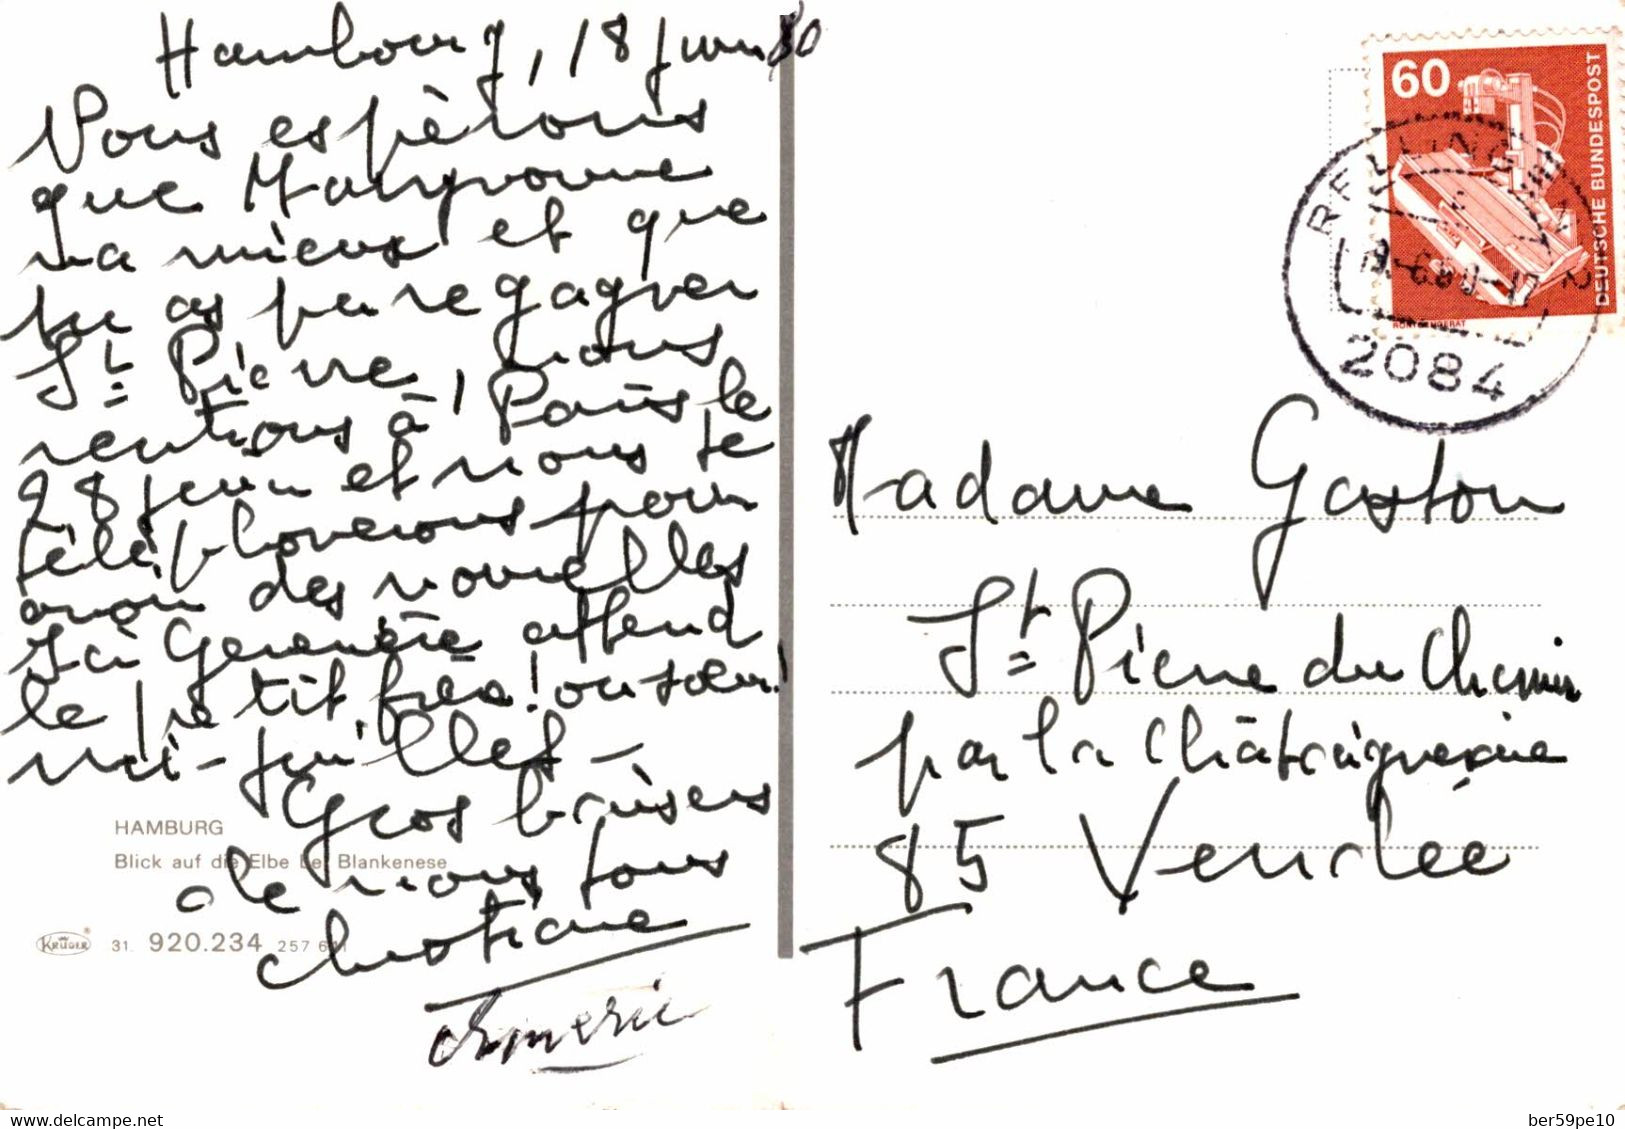 Hambourg, 18 juin 80
Nous espérons
que Maryvonne
va mieux et que
tu as pu regagner
St Pierre, nous
rentrons à Paris le
28 juin et nous te
téléphonerons pour
avoir des nouvelles
Ici Geneviève attend
le petit frère! ou sœur!
mi-juillet -
Gros baisers
de nous tous
Christiane
Aymeric
HAMBURG
Blick auf die Elbe bei Blankenese
KRÜGER
31. 920.234 257 6
60
DEUTSCHE BUNDESPOST
RÖNTGENGERÄT
RELLINGEN 2
19.-6.80-17
2084
Madame Gaston
St Pierre du Chemin
par la Châtaigneraie
85 Vendée
France
www.delcampe.net
ber59pe10